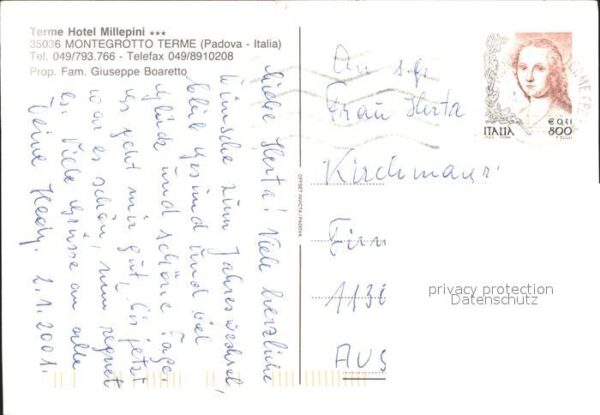 Terme Hotel Millepini ★★★
35036 MONTEGROTTO TERME (Padova - Italia)
Tel. 049/793.766 - Telefax 049/8910208
Prop. Fam. Giuseppe Boaretto
Liebe Herta! Viele herzliche
Wünsche zum Jahreswechsel,
bleib gesund und viel
Glück und schöne Tage.
Es geht mir gut, bis jetzt
war es schön, nun regnet
es. Viele Grüsse an alle
Deine Hedy. 2.1.2001.
OFFSET INVICTA - PADOVA
An
Frau Herta
Kirchmayr
1130
AUS
ITALIA
€ 0,41
800
privacy protection
Datenschutz